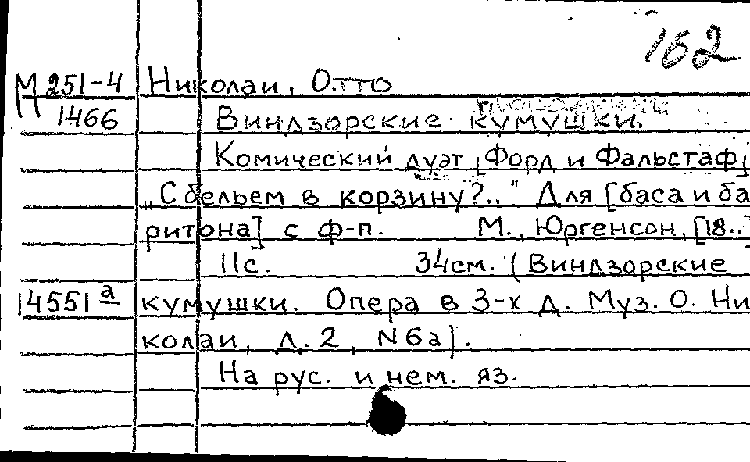 162
М 251-4 Николаи, Отто
1466 Виндзорские кумушки.
Комический дуэт [Форд и Фальстаф]
„С бельем в корзину?.." Для [баса и ба
ритона] с ф-п. М., Юргенсон, [18..]
11с. 34см. (Виндзорские
14551 а кумушки. Опера в 3-х д. Муз. О. Ни
колаи, д. 2, N6а).
На рус. и нем. яз.